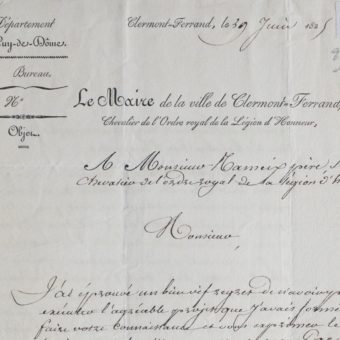 Département
Puy-de-Dôme.
Clermont-Ferrand, le 30 Juin 1825
Bureau.
N.°
Objet.
Le Maire de la ville de Clermont-Ferrand,
Chevalier de l'Ordre royal de la Légion d'Honneur,
A Monsieur Rameix père
Chevalier de l'ordre royal de la Légion d'h
Monsieur,
J'ai éprouvé un bien vif regret de n'avoir
exécuter l'agréable projet que j'avais formé
faire votre connaissance et vous exprimer le